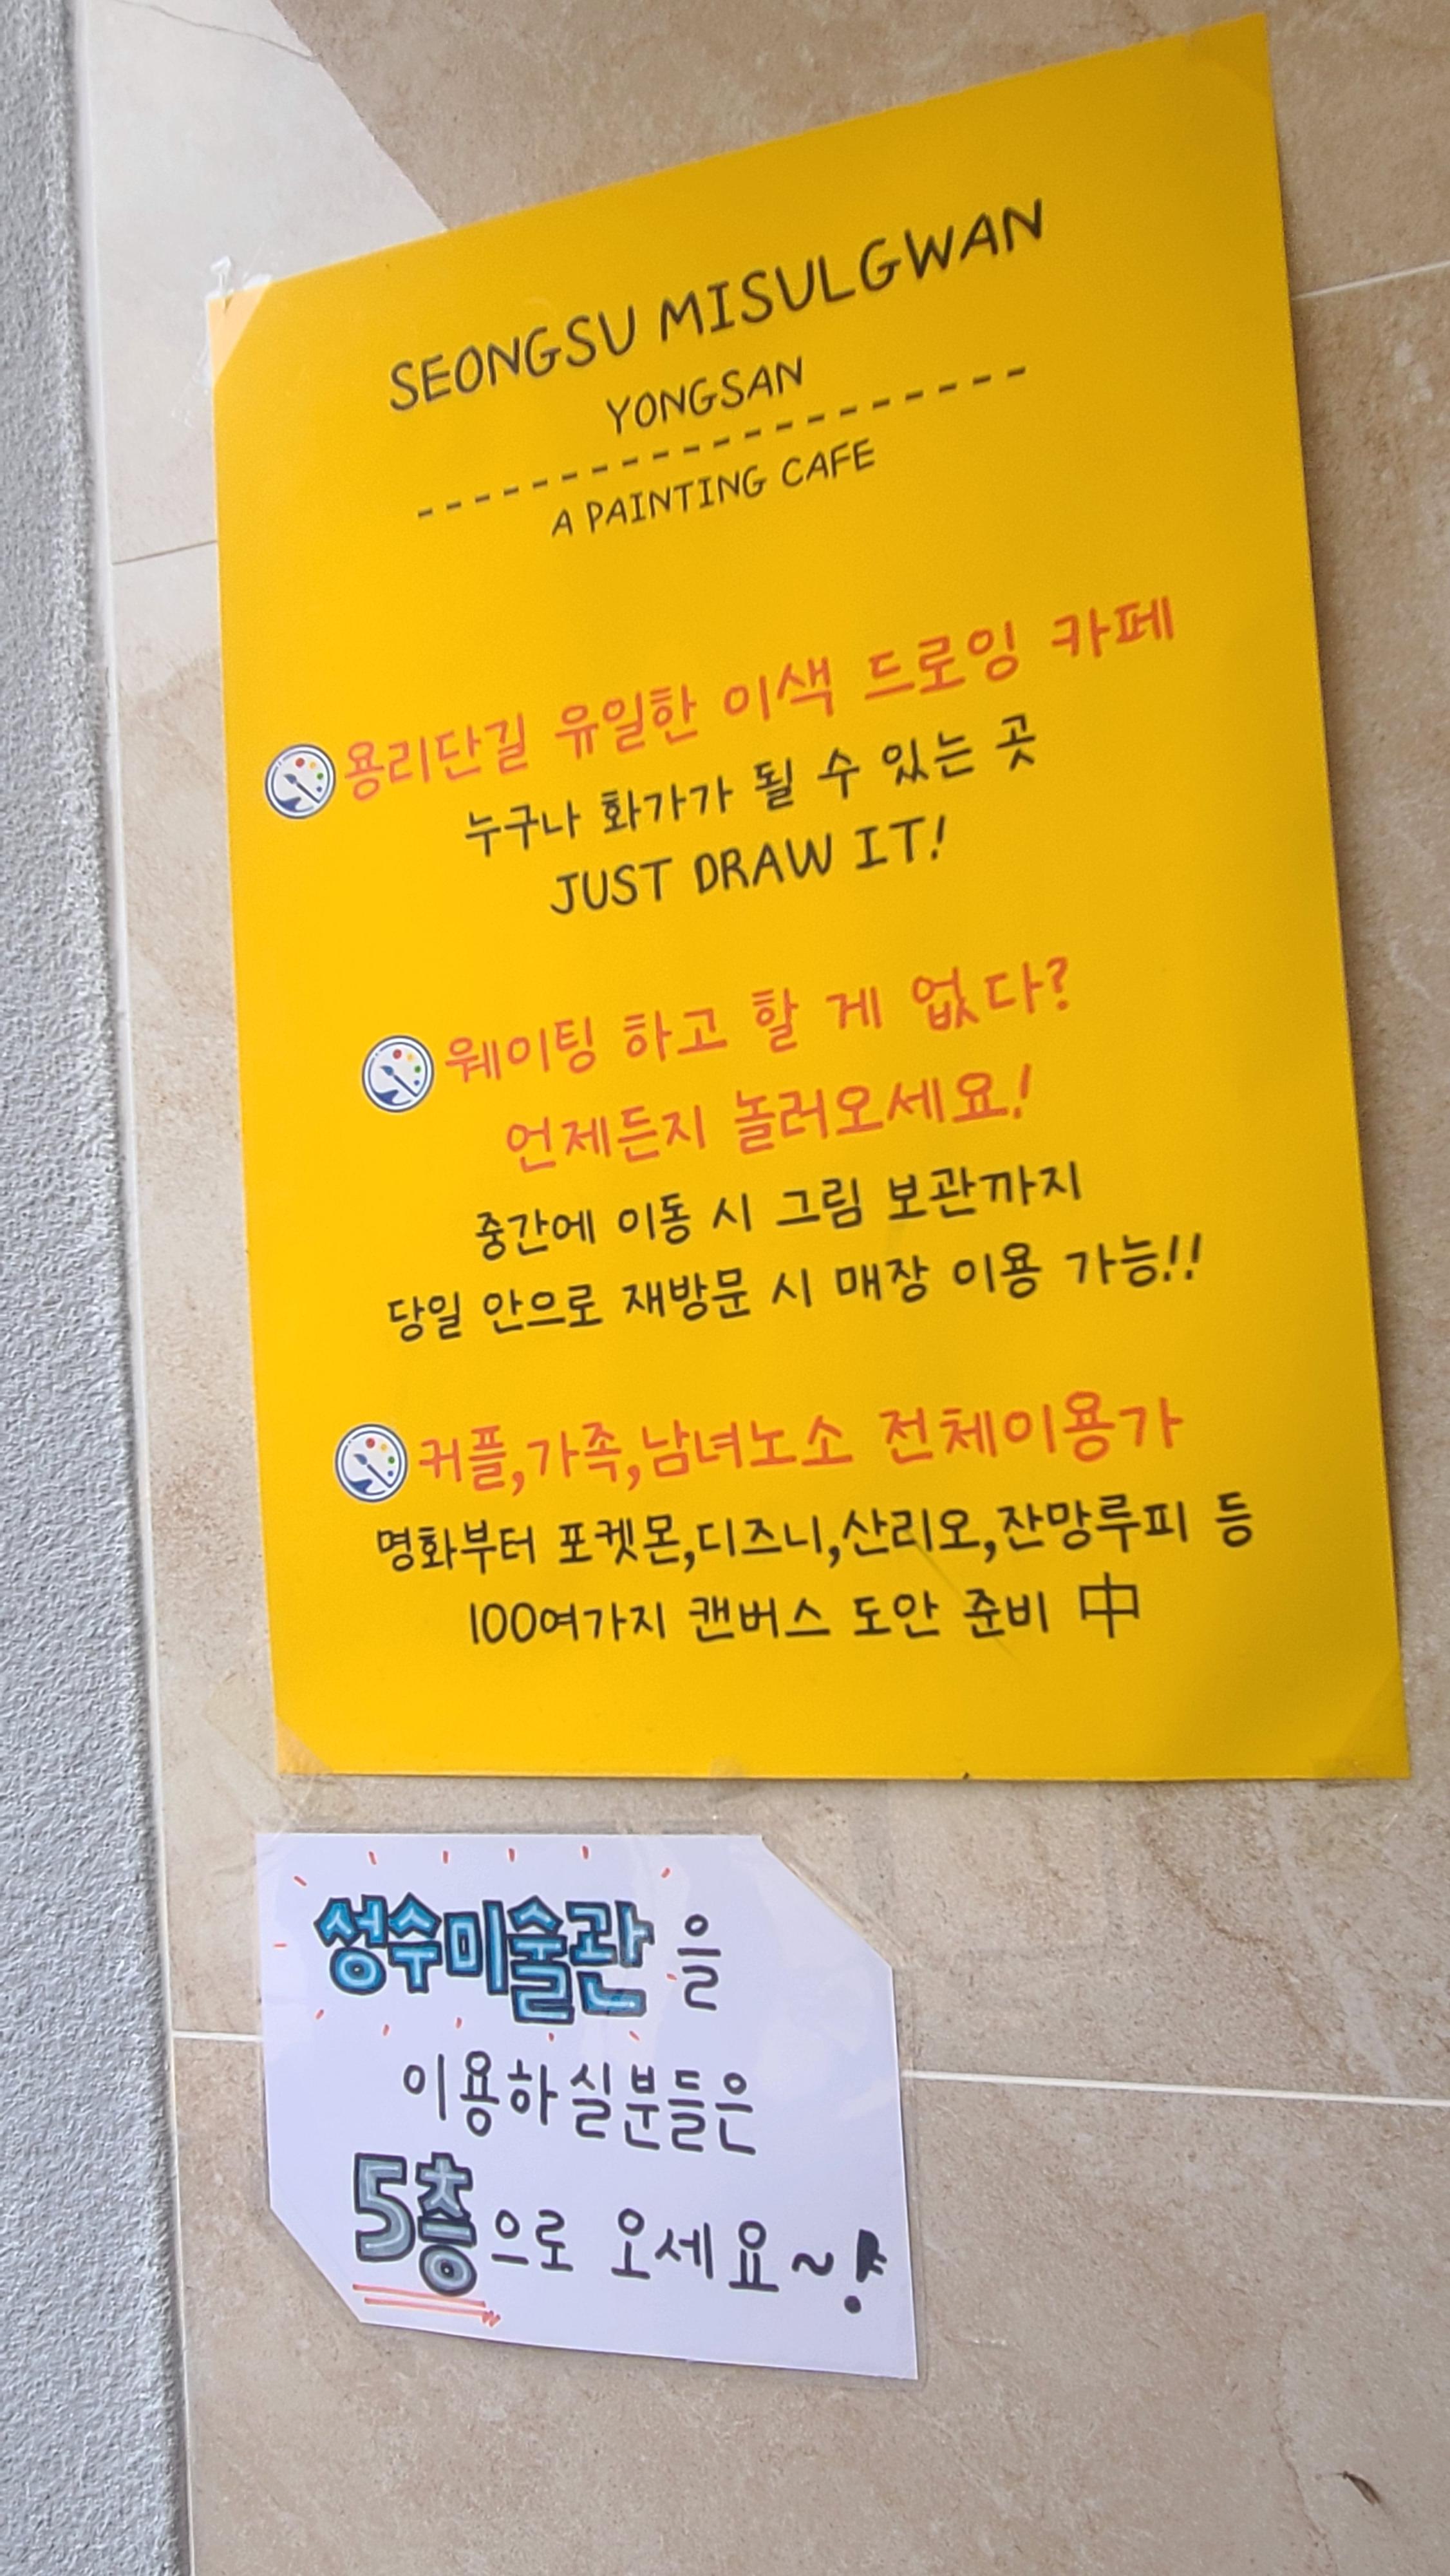 SEONGSU MISULGWAN
YONGSAN
A PAINTING CAFE
용리단길 유일한 이색 드로잉 카페
누구나 화가가 될 수 있는 곳
JUST DRAW IT!
웨이팅 하고 할 게 없다?
언제든지 놀러오세요!
중간에 이동 시 그림 보관까지
당일 안으로 재방문 시 매장 이용 가능!!
커플,가족,남녀노소 전체이용가
명화부터 포켓몬,디즈니,산리오,잔망루피 등
100여가지 캔버스 도안 준비 中
성수미술관을
이용하실분들은
5층으로 오세요~!